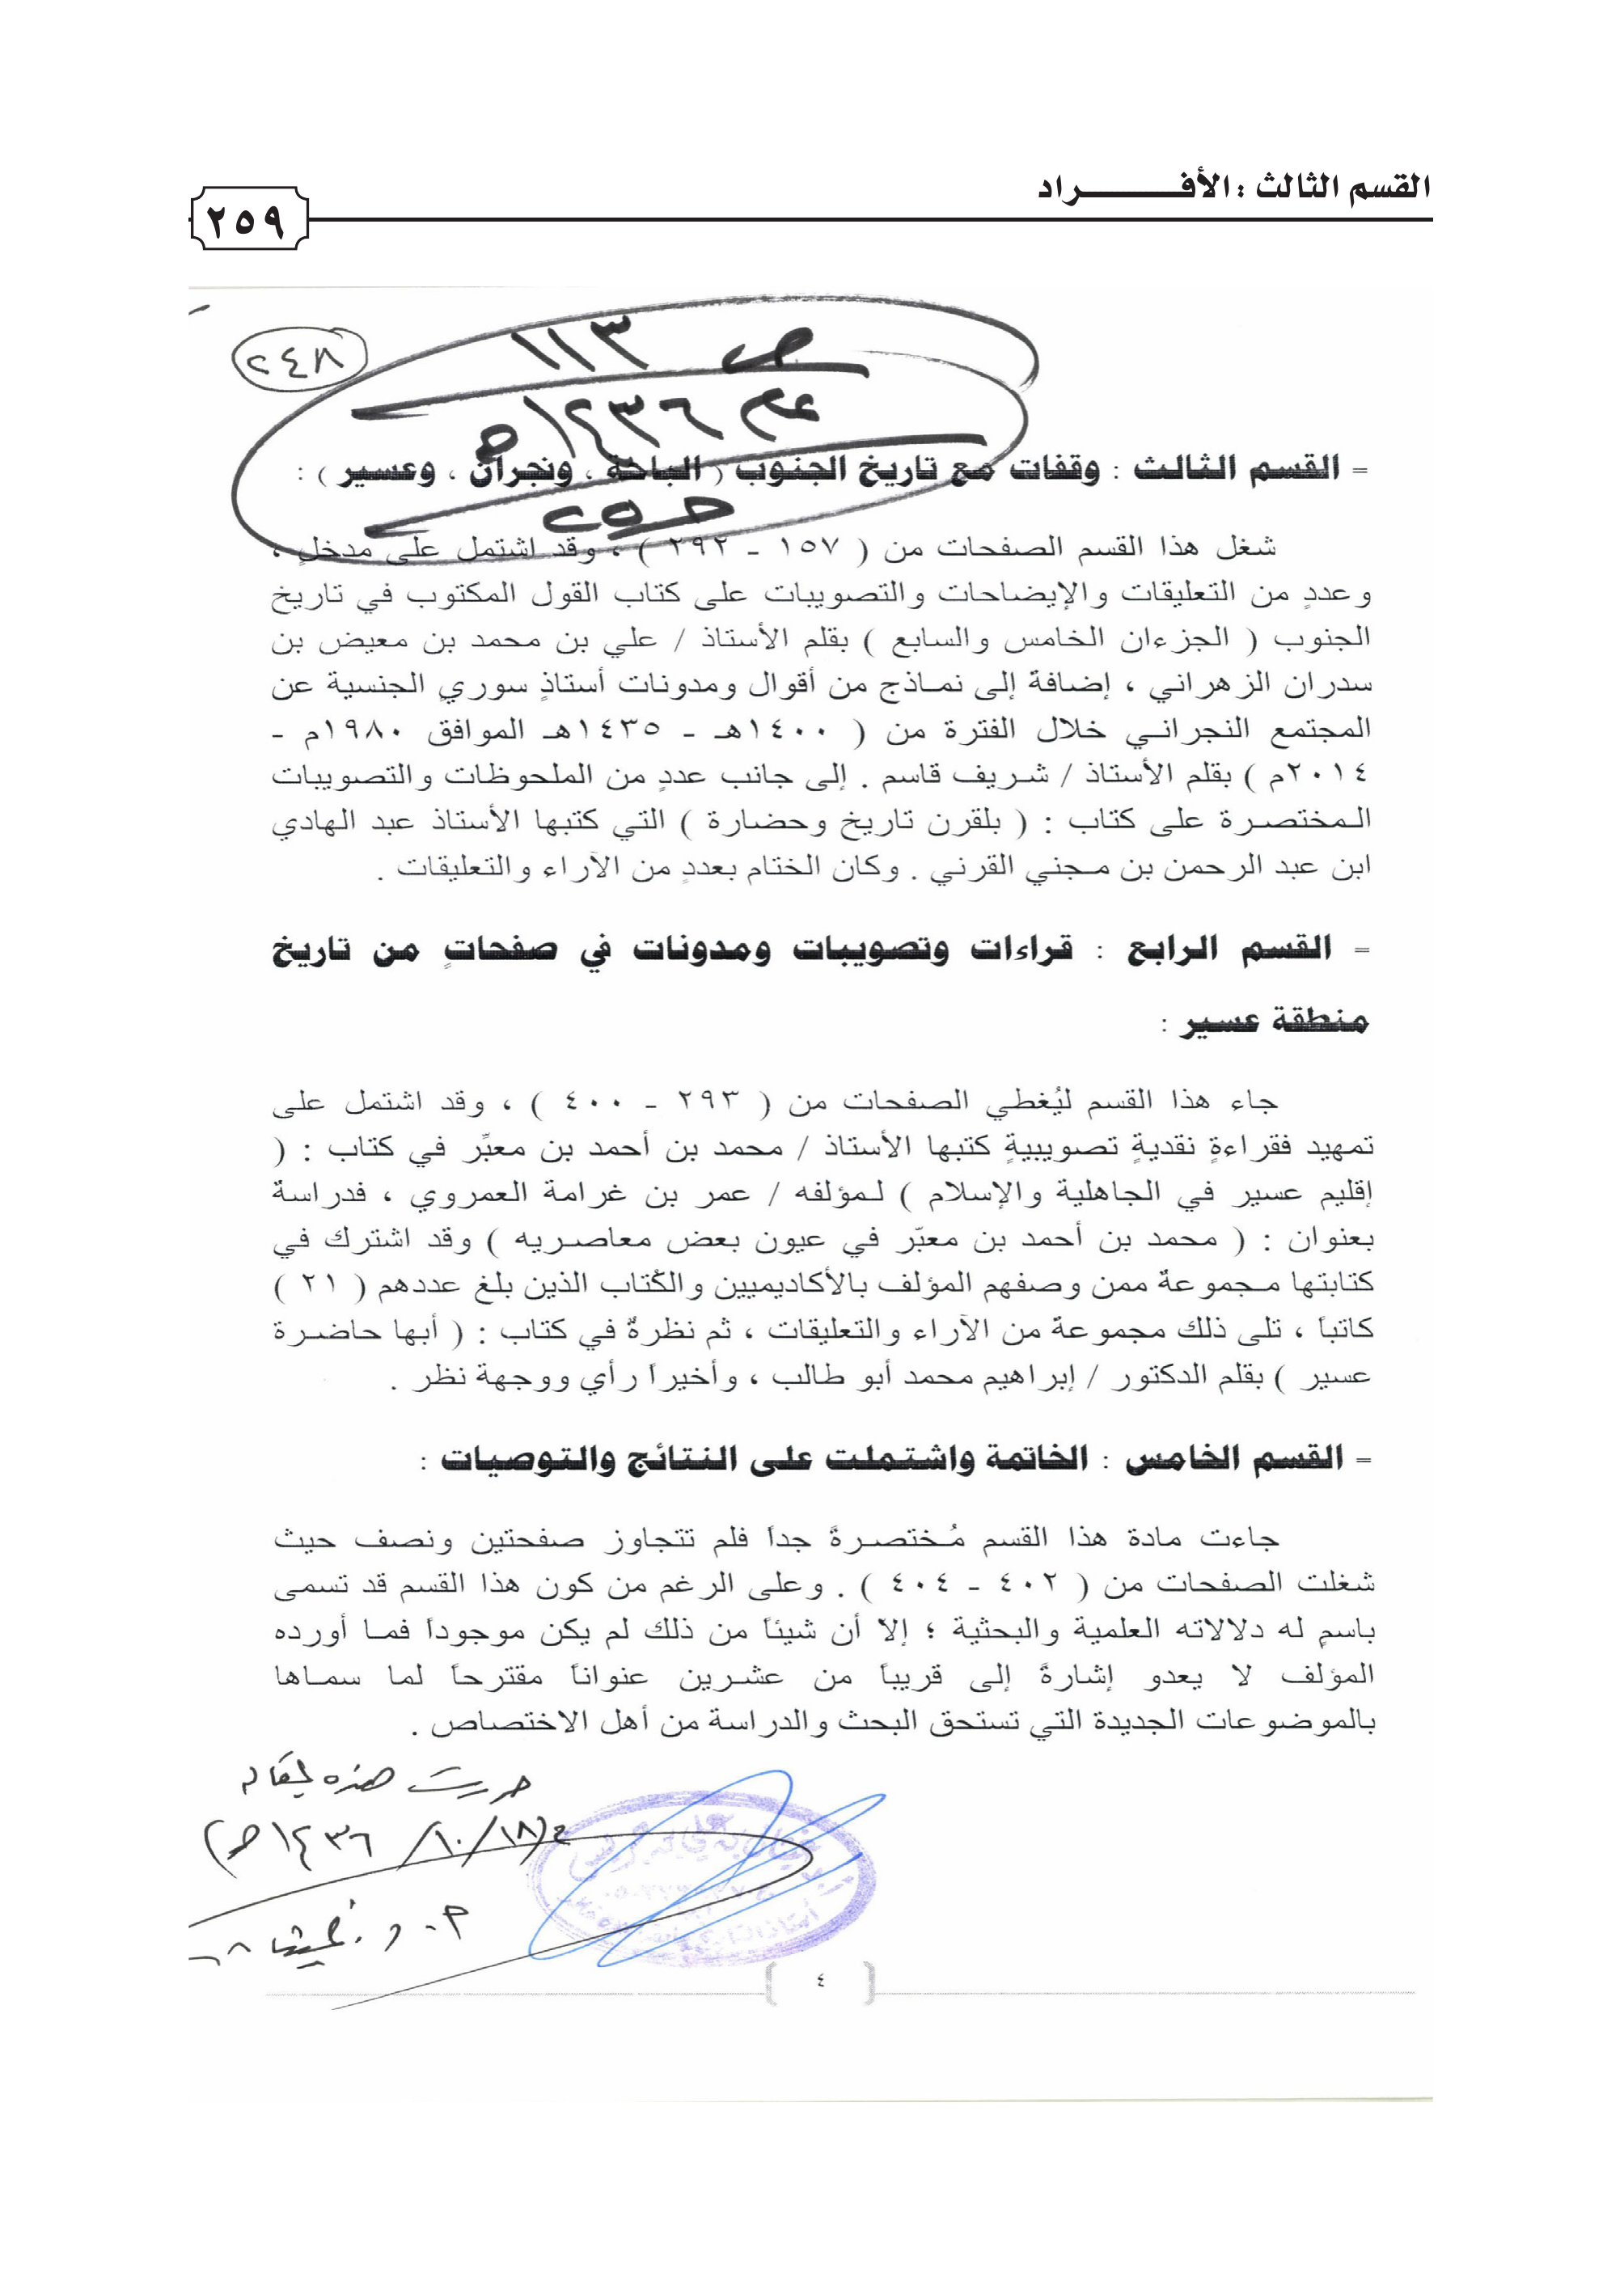 القسم الثالث : الأفـــــــــراد
٢٥٩
٢٤٨
ص ١١٣
عام ١٤٣٦هـ
= القسم الثالث : وقفات مع تاريخ الجنوب ( الباحة ، ونجران ، وعسير ) :
شغل هذا القسم الصفحات من ( ١٥٧ - ٢٩٢ ) ، وقد اشتمل على مدخلٍ ،
وعددٍ من التعليقات والإيضاحات والتصويبات على كتاب القول المكتوب في تاريخ
الجنوب ( الجزءان الخامس والسابع ) بقلم الأستاذ / علي بن محمد بن معيض بن
سدران الزهراني ، إضافة إلى نماذج من أقوال ومدونات أستاذٍ سوريِ الجنسية عن
المجتمع النجراني خلال الفترة من ( ١٤٠٠هـ - ١٤٣٥هـ الموافق ١٩٨٠م -
٢٠١٤م ) بقلم الأستاذ / شريف قاسم . إلى جانب عددٍ من الملحوظات والتصويبات
المختصرة على كتاب : ( بلقرن تاريخ وحضارة ) التي كتبها الأستاذ عبد الهادي
ابن عبد الرحمن بن مجني القرني . وكان الختام بعددٍ من الآراء والتعليقات .
= القسم الرابع : قراءات وتصويبات ومدونات في صفحاتٍ من تاريخ
منطقة عسير :
جاء هذا القسم ليُغطي الصفحات من ( ٢٩٣ - ٤٠٠ ) ، وقد اشتمل على
تمهيد فقراءةٍ نقديةٍ تصويبيةٍ كتبها الأستاذ / محمد بن أحمد بن معبِّر في كتاب : (
إقليم عسير في الجاهلية والإسلام ) لمؤلفه / عمر بن غرامة العمروي ، فدراسة
بعنوان : ( محمد بن أحمد بن معبّر في عيون بعض معاصريه ) وقد اشترك في
كتابتها مجموعةٌ ممن وصفهم المؤلف بالأكاديميين والكُتاب الذين بلغ عددهم ( ٢١ )
كاتباً ، تلى ذلك مجموعة من الآراء والتعليقات ، ثم نظرةٌ في كتاب : ( أبها حاضرة
عسير ) بقلم الدكتور / إبراهيم محمد أبو طالب ، وأخيراً رأي ووجهة نظر .
= القسم الخامس : الخاتمة واشتملت على النتائج والتوصيات :
جاءت مادة هذا القسم مُختصرةً جداً فلم تتجاوز صفحتين ونصف حيث
شغلت الصفحات من ( ٤٠٢ - ٤٠٤ ) . وعلى الرغم من كون هذا القسم قد تسمى
باسمٍ له دلالاته العلمية والبحثية ؛ إلاّ أن شيئاً من ذلك لم يكن موجوداً فما أورده
المؤلف لا يعدو إشارةً إلى قريباً من عشرين عنواناً مقترحاً لما سماها
بالموضوعات الجديدة التي تستحق البحث والدراسة من أهل الاختصاص .
حررت هذه
٤